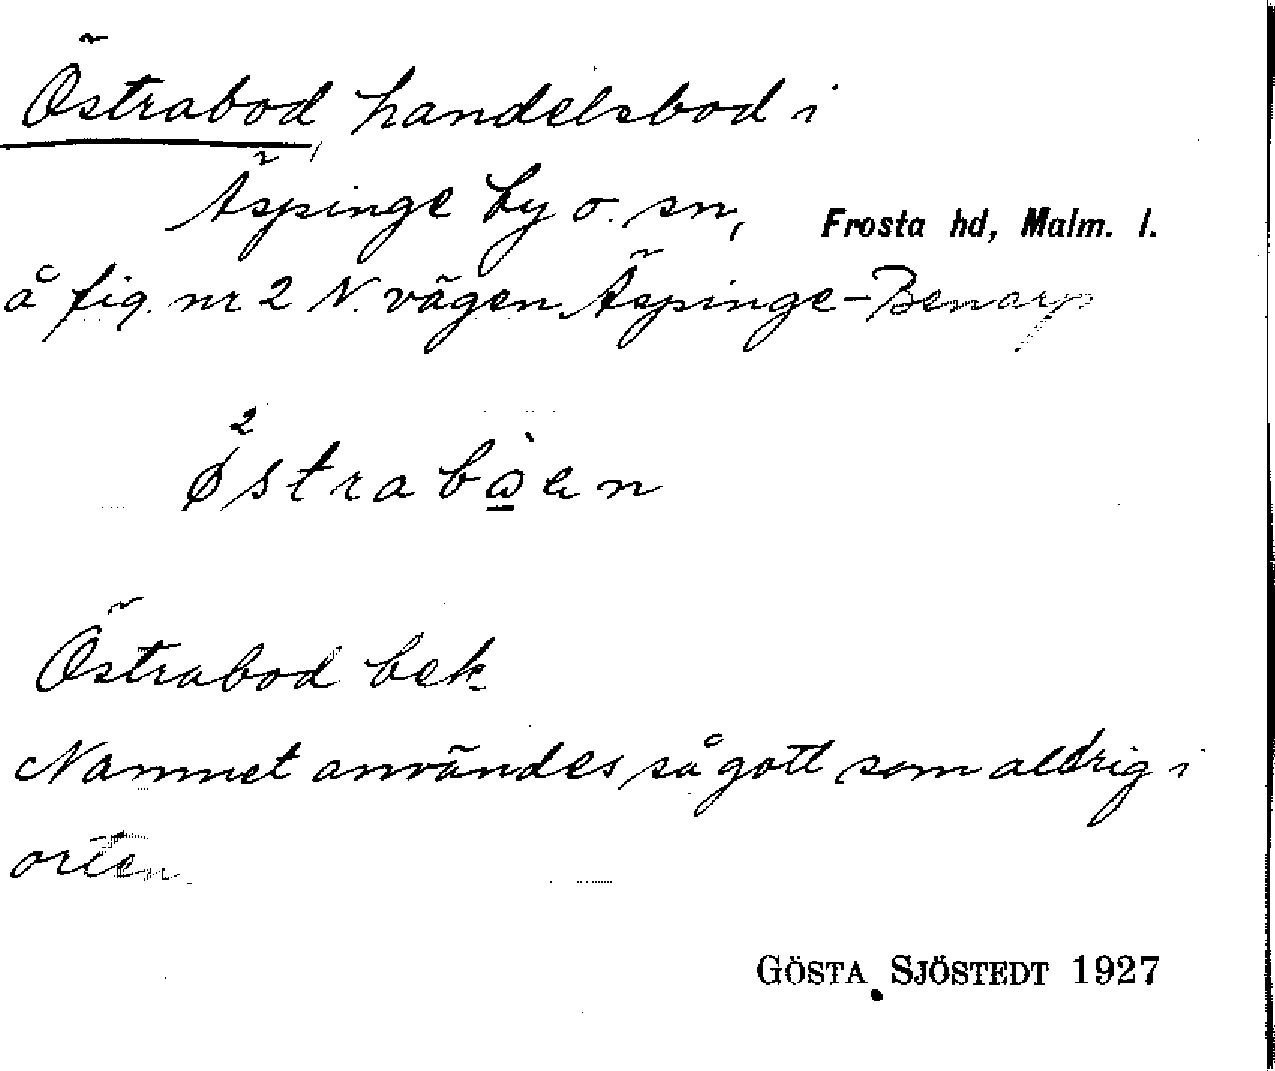 Östrabod, handelsbod i
Äspinge by o. sn, Frosta hd, Malm. l.
å fig. nr 2 N. vägen Äspinge-Benarp
Östrabod bek.
Namnet användes så gott som aldrig i
orten.
GÖSTA SJÖSTEDT 1927